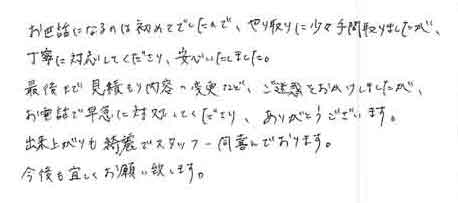 お世話になるのは初めてでしたので、やり取りに少々手間取りましたが、
丁寧に対応してくださり、安心いたしました。
最後まで見積もり内容の変更など、ご迷惑をおかけしましたが、
お電話で早急に対処してくださり、ありがとうございます。
出来上がりも綺麗でスタッフ一同喜んでおります。
今後も宜しくお願い致します。